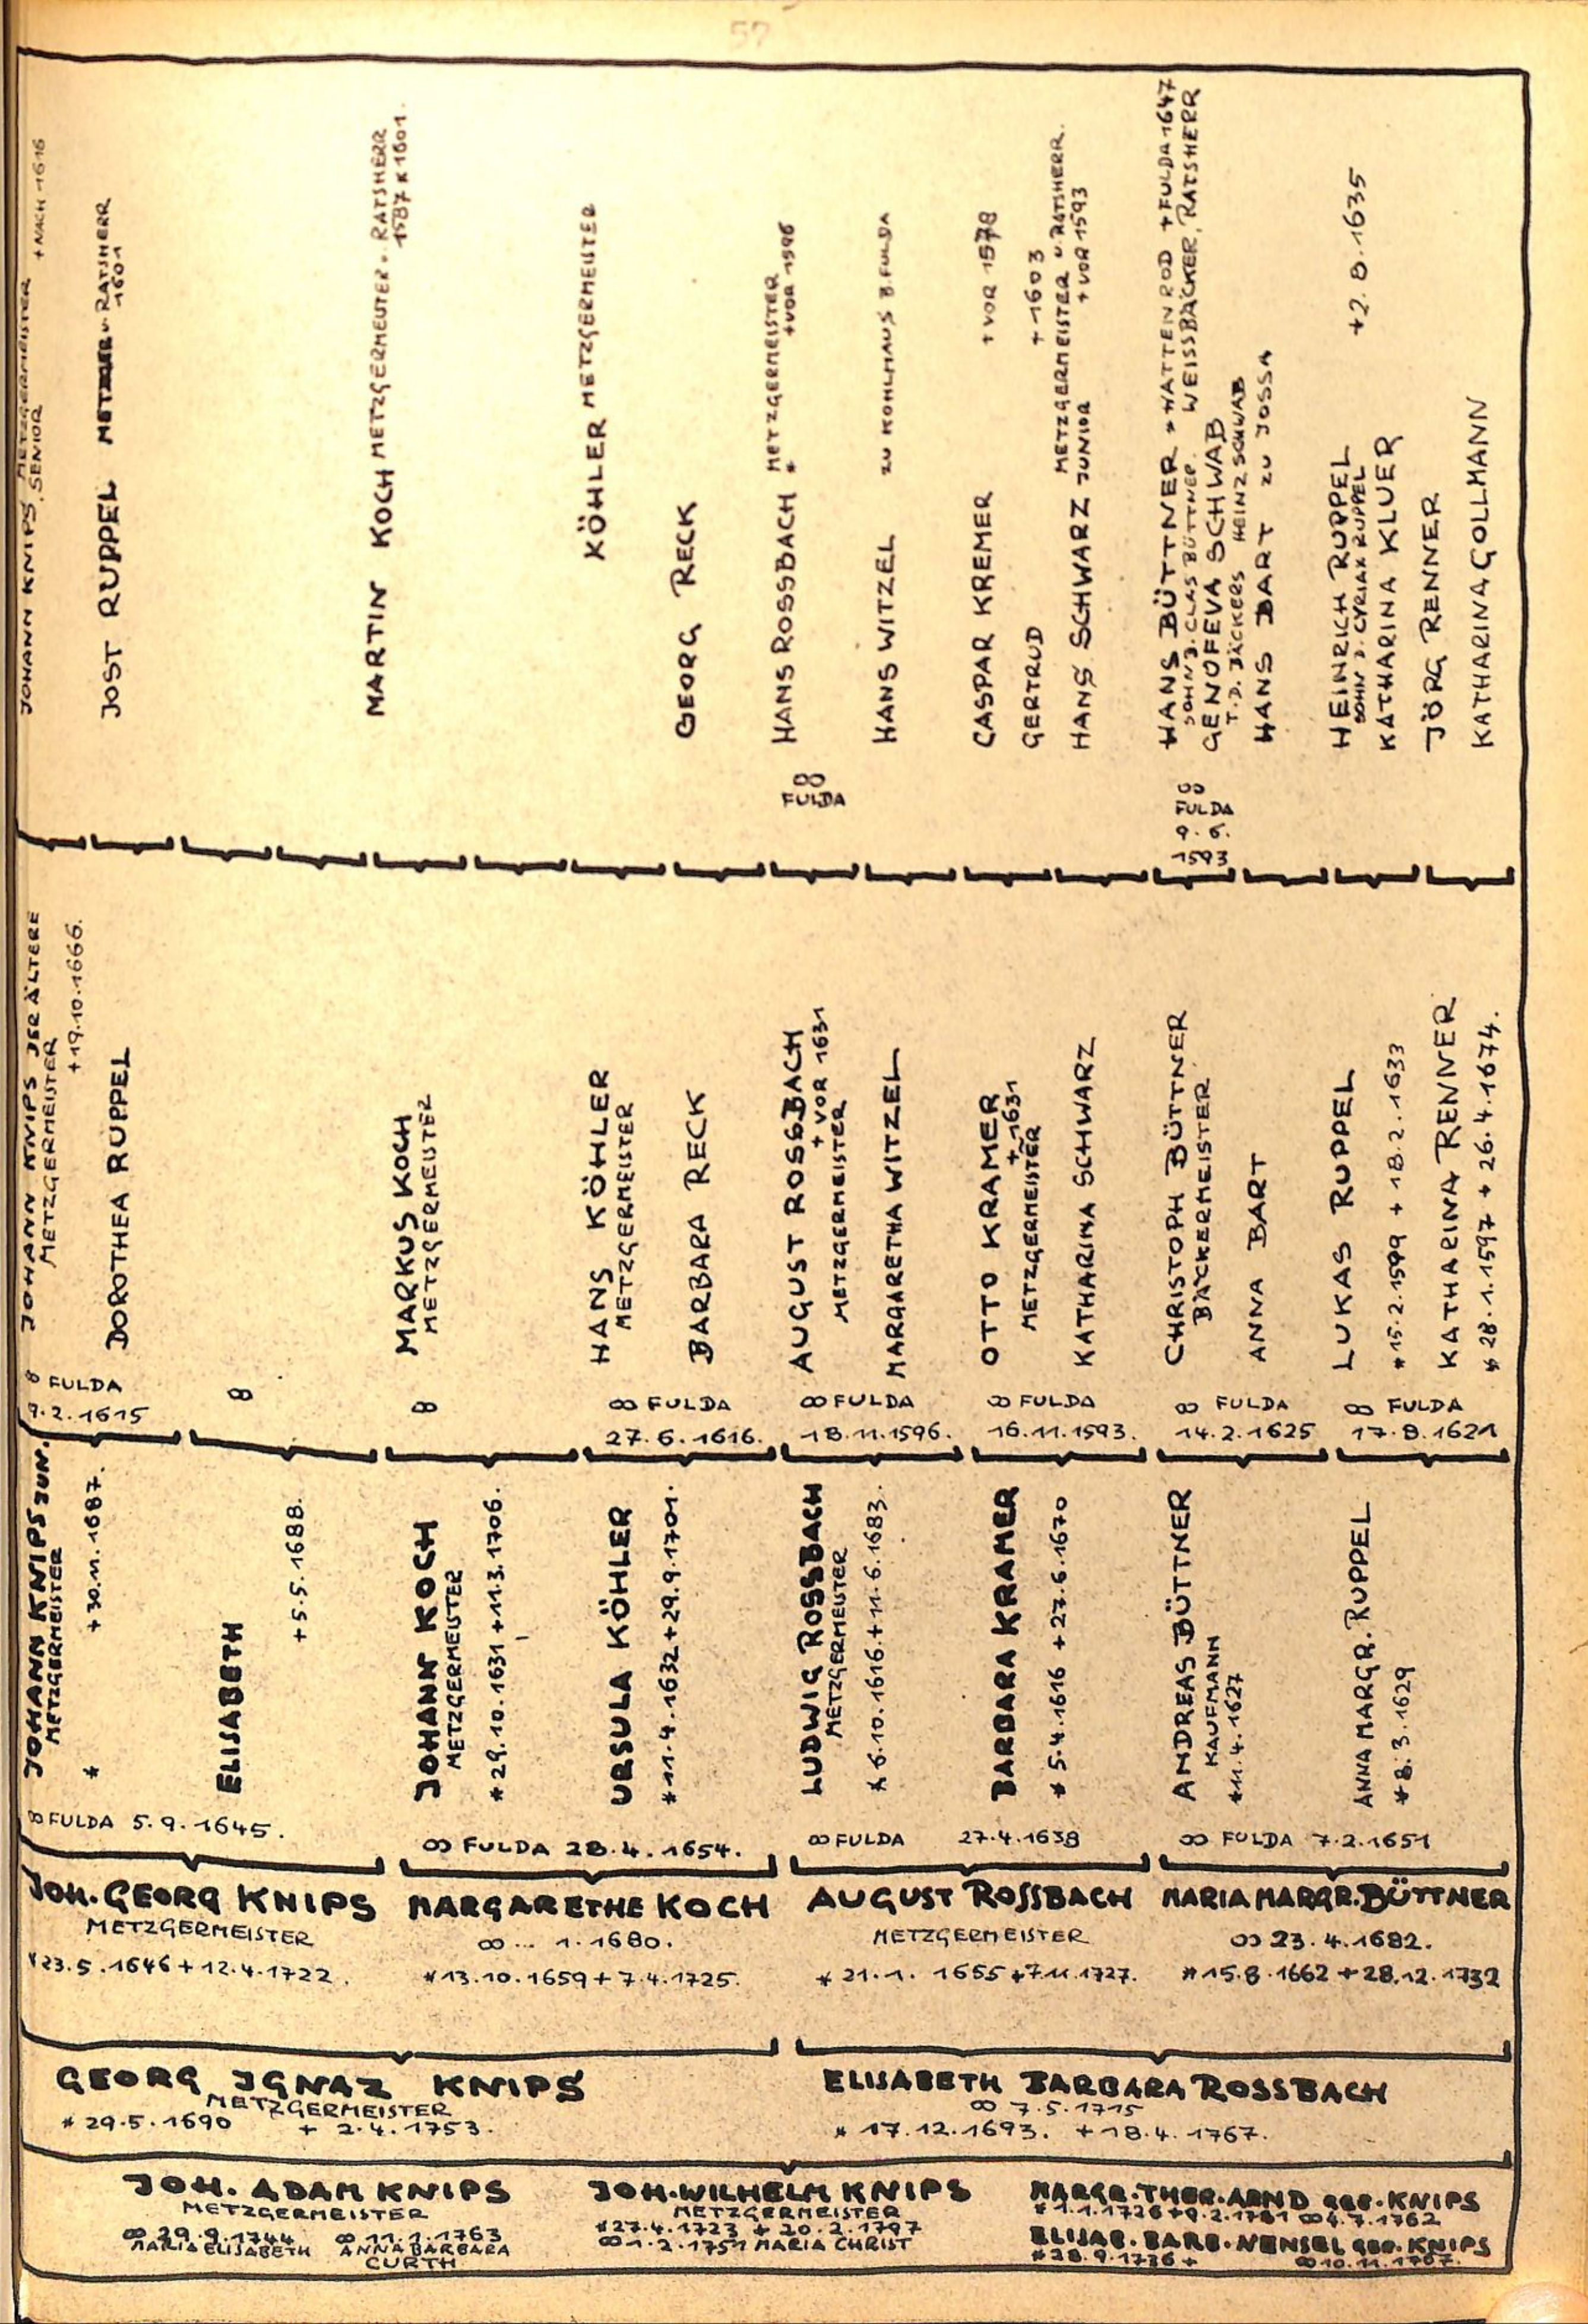 57
JOHANN KNIPS, METZGERMEISTER + NACH 1616
, SENIOR
JOST RUPPEL METZGER U. RATSHERR
1601
MARTIN KOCH METZGERMEISTER. RATSHERR
1587 K 1601.
KÖHLER METZGERMEISTER
GEORG RECK
HANS ROSSBACH METZGERMEISTER
* +VOR 1596
∞
FULDA
HANS WITZEL ZU KOHLHAUS B. FULDA
CASPAR KREMER + VOR 1578
GERTRUD + 1603
HANS SCHWARZ METZGERMEISTER U. RATSHERR.
JUNIOR + VOR 1593
HANS BÜTTNER * WATTENROD + FULDA 1647
SOHN D. CLAS BÜTTNER. WEISSBÄCKER, RATSHERR
GENOFEVA SCHWAB
T. D. JÄCKERS HEINZ SCHWAB
∞
FULDA
9. 6.
1593
HANS BART ZU JOSSA
HEINRICH RUPPEL +2. 8. 1635
SOHN D. CYRIAX RUPPEL
KATHARINA KLUER
JÖRG RENNER
KATHARINA GOLLMANN
JOHANN KNIPS DER ÄLTERE
METZGERMEISTER
+ 19.10.1666.
DOROTHEA RUPPEL
∞ FULDA
9. 2. 1615
∞
MARKUS KOCH
METZGERMEISTER
∞
HANS KÖHLER
METZGERMEISTER
BARBARA RECK
∞ FULDA
27. 6. 1616.
AUGUST ROSSBACH
+ VOR 1631
METZGERMEISTER
MARGARETHA WITZEL
∞ FULDA
18. 11. 1596.
OTTO KRAMER
+ 1631
METZGERMEISTER
KATHARINA SCHWARZ
∞ FULDA
16. 11. 1593.
CHRISTOPH BÜTTNER
BÄCKERMEISTER
ANNA BART
∞ FULDA
14. 2. 1625
LUKAS RUPPEL
* 15. 2. 1599 + 18. 2. 1633
KATHARINA RENNER
* 28. 1. 1597 + 26. 4. 1674.
∞ FULDA
17. 8. 1621
JOHANN KNIPS JUN.
METZGERMEISTER
* + 30. 11. 1687.
ELISABETH
+ 5. 5. 1688.
∞ FULDA 5. 9. 1645.
JOHANN KOCH
METZGERMEISTER
* 29. 10. 1631 + 11. 3. 1706.
URSULA KÖHLER
* 11. 4. 1632 + 29. 9. 1701.
∞ FULDA 28. 4. 1654.
LUDWIG ROSSBACH
METZGERMEISTER
* 6. 10. 1616. + 11. 6. 1683.
BARBARA KRAMER
* 5. 4. 1616 + 27. 6. 1670
∞ FULDA 27. 4. 1638
ANDREAS BÜTTNER
KAUFMANN
* 11. 4. 1627
ANNA MARGR. RUPPEL
* 8. 3. 1629
∞ FULDA 7. 2. 1651
JOH. GEORG KNIPS
METZGERMEISTER
* 23. 5. 1646 + 12. 4. 1722.
MARGARETHE KOCH
∞ ... 1. 1680.
* 13. 10. 1659 + 7. 4. 1725.
AUGUST ROSSBACH
METZGERMEISTER
* 21. 1. 1655 + 7. 11. 1727.
MARIA MARGR. BÜTTNER
∞ 23. 4. 1682.
* 15. 8. 1662 + 28. 12. 1732
GEORG IGNAZ KNIPS
METZGERMEISTER
* 29. 5. 1690 + 2. 4. 1753.
ELISABETH BARBARA ROSSBACH
∞ 7. 5. 1715
* 17. 12. 1693. + 18. 4. 1767.
JOH. ADAM KNIPS
METZGERMEISTER
∞ 29. 9. 1744 ∞ 11. 1. 1763
MARIA ELISABETH ANNA BARBARA
CURTH
JOH. WILHELM KNIPS
METZGERMEISTER
* 27. 4. 1723 + 20. 2. 1797
∞ 1. 2. 1751 MARIA CHRIST
MARGR. THER. ARND GEB. KNIPS
* 1. 1. 1726 + 9. 2. 1781 ∞ 4. 7. 1762
ELISAB. BARB. NENSEL GEB. KNIPS
* 28. 9. 1736 + ∞ 10. 11. 1767.